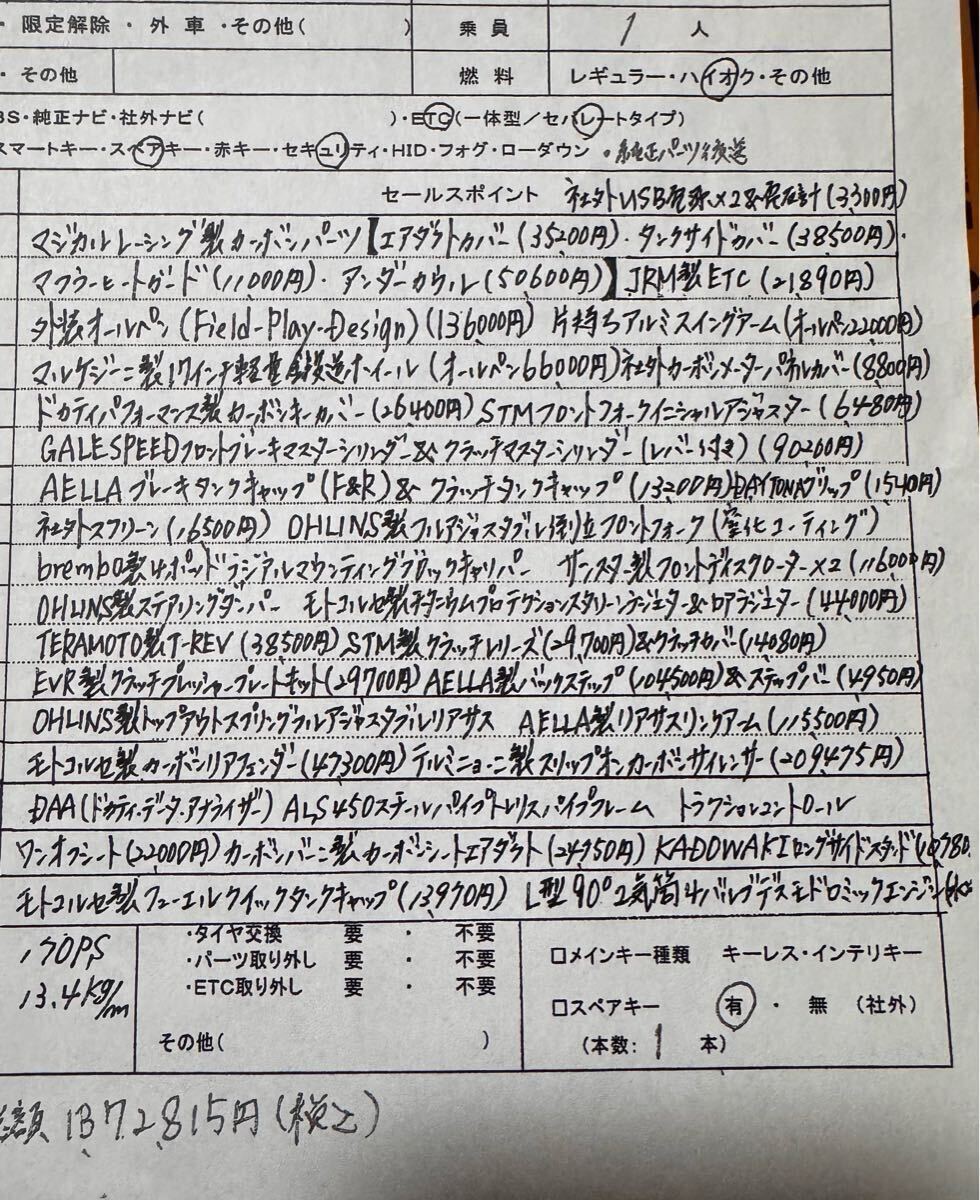 ・限定解除・外車・その他( ) 乗員 1 人
・その他 燃料 レギュラー・ハイオク・その他
BS・純正ナビ・社外ナビ( )・ETC(一体型/セパレートタイプ)
スマートキー・スペアキー・赤キー・セキュリティ・HID・フォグ・ローダウン ・純正パーツ後送
セールスポイント 社外USB電源×2&電圧計(3,300円)
マジカルレーシング製カーボンパーツ【エアダクトカバー(35200円)・タンクサイドカバー(38500円)・
マフラーヒートガード(11,000円)・アンダーカウル(50,600円)】JRM製ETC(21,890円)
外装オールペン(Field-Play-Design)(136000円) 片持ちアルミスイングアーム(オールペン22000円)
マルケジーニ製17インチ軽量鍛造ホイール(オールペン66000円)社外カーボンメーターパネルカバー(8800円)
ドカティパフォーマンス製カーボンキーカバー(26400円)STMフロントフォークイニシャルアジャスター(6480円)
GALESPEEDフロントブレーキマスターシリンダー&クラッチマスターシリンダー(レバー付き)(90200円)
AELLAブレーキタンクキャップ(F&R)&クラッチタンクキャップ(13200円)DAYTONAグリップ(1540円)
社外スクリーン(16500円) OHLINS製フルアジャスタブル倒立フロントフォーク(窒化コーティング)
brembo製4ポッドラジアルマウンティングブロックキャリパー サンスター製フロントディスクローター×2(116000円)
OHLINS製ステアリングダンパー モトコルセ製チタニウムプロテクションスクリーンラジエター&ロアラジエター(44000円)
TERAMOTO製T-REV(38500円)STM製クラッチレリーズ(29,700円)&クラッチカバー(14080円)
EVR製クラッチプレッシャープレートキット(29700円)AELLA製バックステップ(104500円)&ステップバー(4950円)
OHLINS製トップアウトスプリングフルアジャスタブルリアサス AELLA製リアサスリンクアーム(115500円)
モトコルセ製カーボンリアフェンダー(47300円)テルミニョーニ製スリップオンカーボンサイレンサー(209475円)
DAA(ドカティ・データ・アナライザー)ALS450スチールパイプトレリスパイプフレーム トラクションコントロール
ワンオフシート(22000円)カーボンバーニ製カーボンシートエアダクト(24750円)KADOWAKIロングサイドスタンド(10780
モトコルセ製フューエルクイックタンクキャップ(13970円) L型90°2気筒4バルブデスモドロミックエンジン
170PS
13.4kg/m
・タイヤ交換 要 ・ 不要
・パーツ取り外し 要 ・ 不要
・ETC取り外し 要 ・ 不要
その他( )
□メインキー種類 キーレス・インテリキー
□スペアキー 有 ・ 無 (社外)
(本数: 1 本)
額 1372815円(税込)